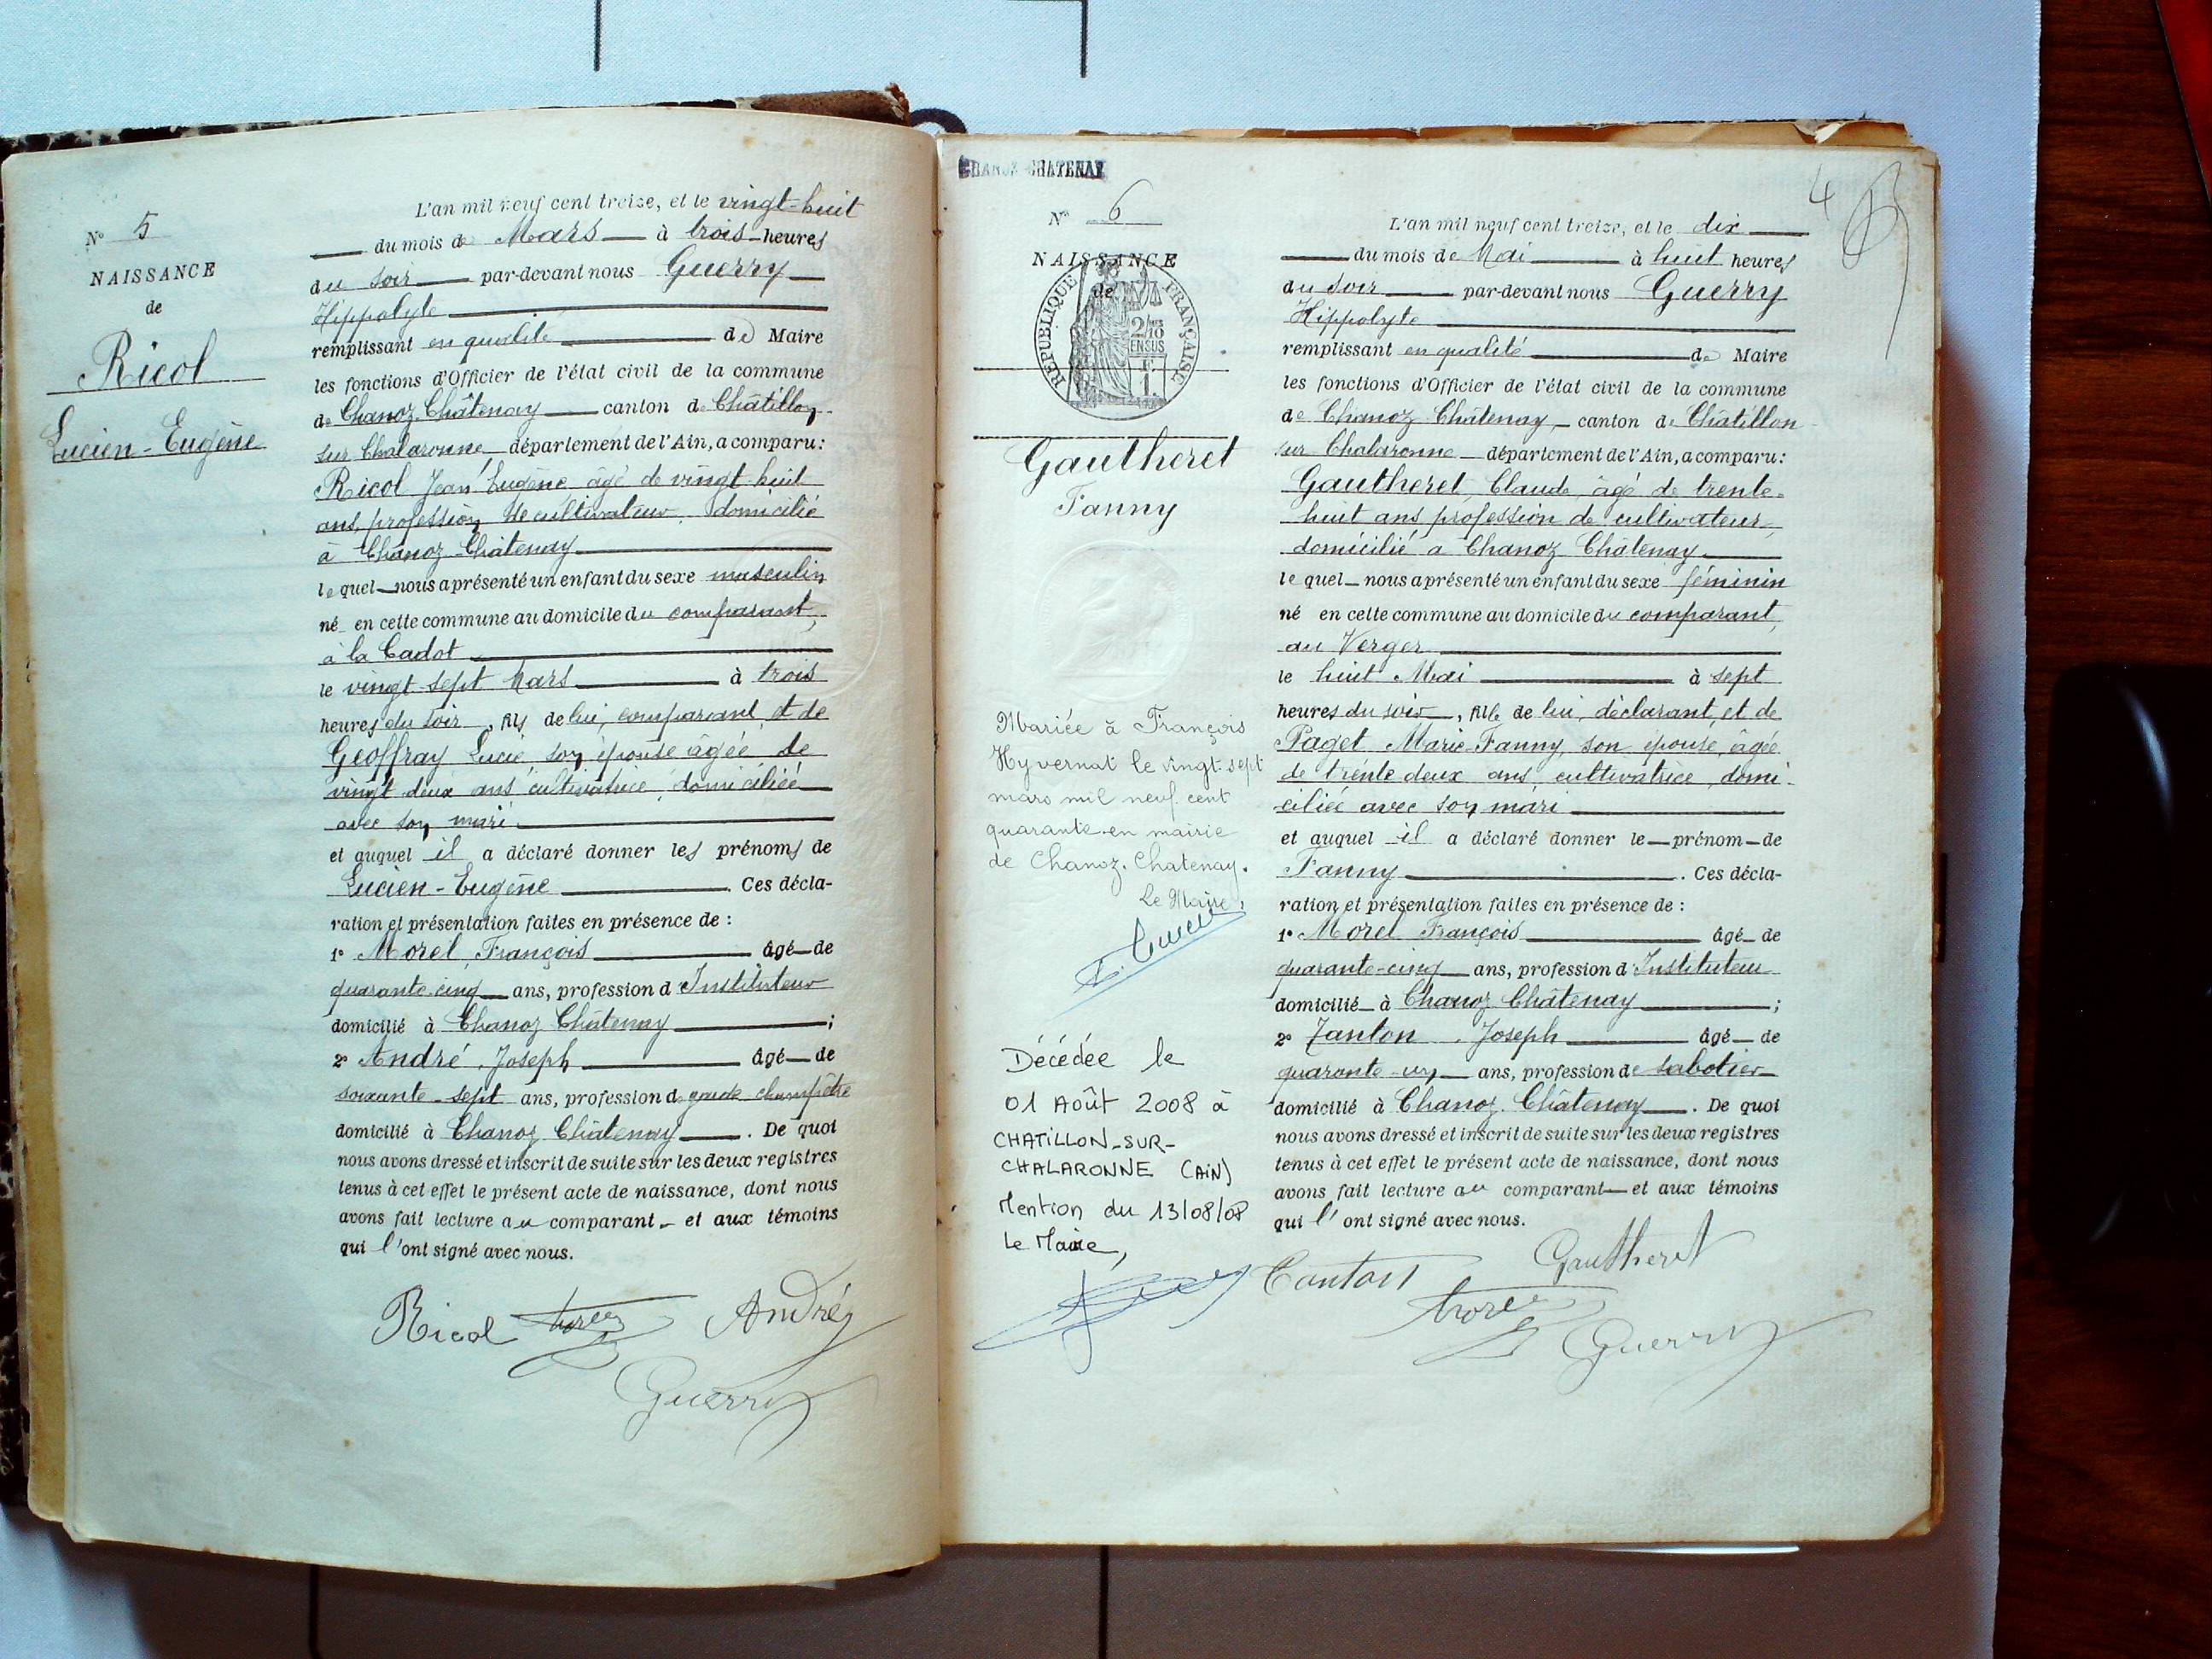 N° 5
NAISSANCE
de
Ricol
Lucien-Eugène
L'an mil neuf cent treize, et le vingt-huit
du mois de Mars à trois heures
du soir par-devant nous Guerry
Hippolyte
remplissant en qualité de Maire
les fonctions d'Officier de l'état civil de la commune
de Chanoz-Châtenay canton de Châtillon-
sur Chalaronne département de l'Ain, a comparu:
Ricol Jean Eugène âgé de vingt-huit
ans, profession de cultivateur, domicilié
à Chanoz-Châtenay
lequel nous a présenté un enfant du sexe masculin
né en cette commune au domicile du comparant,
à la Cadot
le vingt-sept Mars à trois
heures du soir, fils de lui, comparant, et de
Geoffray Lucie son épouse âgée de
vingt deux ans cultivatrice, domiciliée
avec son mari.
et auquel il a déclaré donner les prénoms de
Lucien-Eugène. Ces décla-
ration et présentation faites en présence de :
1° Morel, François âgé de
quarante-cinq ans, profession d'Instituteur
domicilié à Chanoz Châtenay ;
2° André, Joseph âgé de
soixante-sept ans, profession de garde champêtre
domicilié à Chanoz Châtenay. De quoi
nous avons dressé et inscrit de suite sur les deux registres
tenus à cet effet le présent acte de naissance, dont nous
avons fait lecture au comparant et aux témoins
qui l'ont signé avec nous.
Ricol Morel André
Guerry
CHANOZ-CHATENAY
4
N° 6
NAISSANCE
de
RÉPUBLIQUE FRANÇAISE
2/10 EN SUS
F. 1
Gautheret
Fanny
Mariée à François
Hyvernat le vingt-sept
mars mil neuf cent
quarante en mairie
de Chanoz-Chatenay.
Le Maire,
Décédée le
01 Août 2008 à
CHATILLON-SUR-
CHALARONNE (AIN)
Mention du 13/08/08
Le Maire,
L'an mil neuf cent treize, et le dix
du mois de Mai à huit heures
du soir par-devant nous Guerry
Hippolyte
remplissant en qualité de Maire
les fonctions d'Officier de l'état civil de la commune
de Chanoz-Châtenay, canton de Châtillon-
sur Chalaronne département de l'Ain, a comparu:
Gautheret, Claude, âgé de trente-
huit ans, profession de cultivateur,
domicilié à Chanoz Châtenay
lequel nous a présenté un enfant du sexe féminin
né en cette commune au domicile du comparant,
au Verger
le huit Mai à sept
heures du soir, fille de lui, déclarant, et de
Paget Marie-Fanny, son épouse, âgée
de trente deux ans, cultivatrice, domi-
ciliée avec son mari
et auquel il a déclaré donner le prénom de
Fanny. Ces décla-
ration et présentation faites en présence de :
1° Morel François âgé de
quarante-cinq ans, profession d'Instituteur
domicilié à Chanoz Châtenay ;
2° Tanton, Joseph âgé de
quarante-un ans, profession de sabotier
domicilié à Chanoz Châtenay. De quoi
nous avons dressé et inscrit de suite sur les deux registres
tenus à cet effet le présent acte de naissance, dont nous
avons fait lecture au comparant et aux témoins
qui l'ont signé avec nous.
Tanton Gautheret
Morel
Guerry